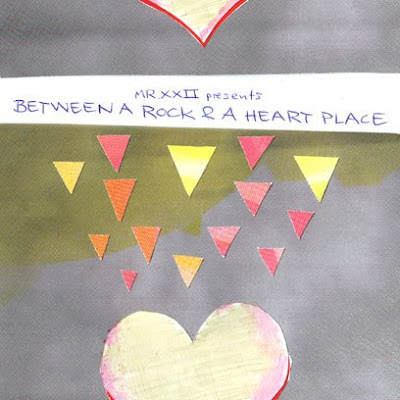 MR. XXII presents
BETWEEN A ROCK & A HEART PLACE